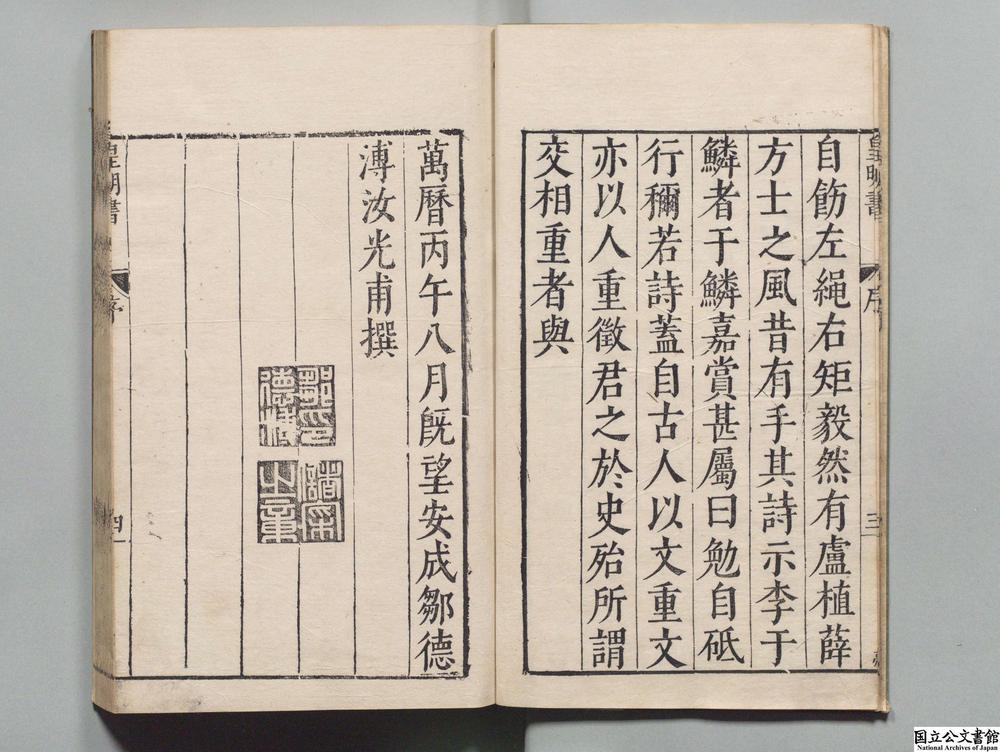 皇明書
序
三
自飭左繩右矩毅然有盧植薛
方士之風昔有手其詩示李于
鱗者于鱗嘉賞甚屬曰勉自砥
行穪若詩蓋自古人以文重文
亦以人重徵君之於史殆所謂
交相重者與
萬曆丙午八月旣望安成鄒德
溥汝光甫撰
鄒印
德溥
皇明書
序
四
国立公文書館
National Archives of Japan